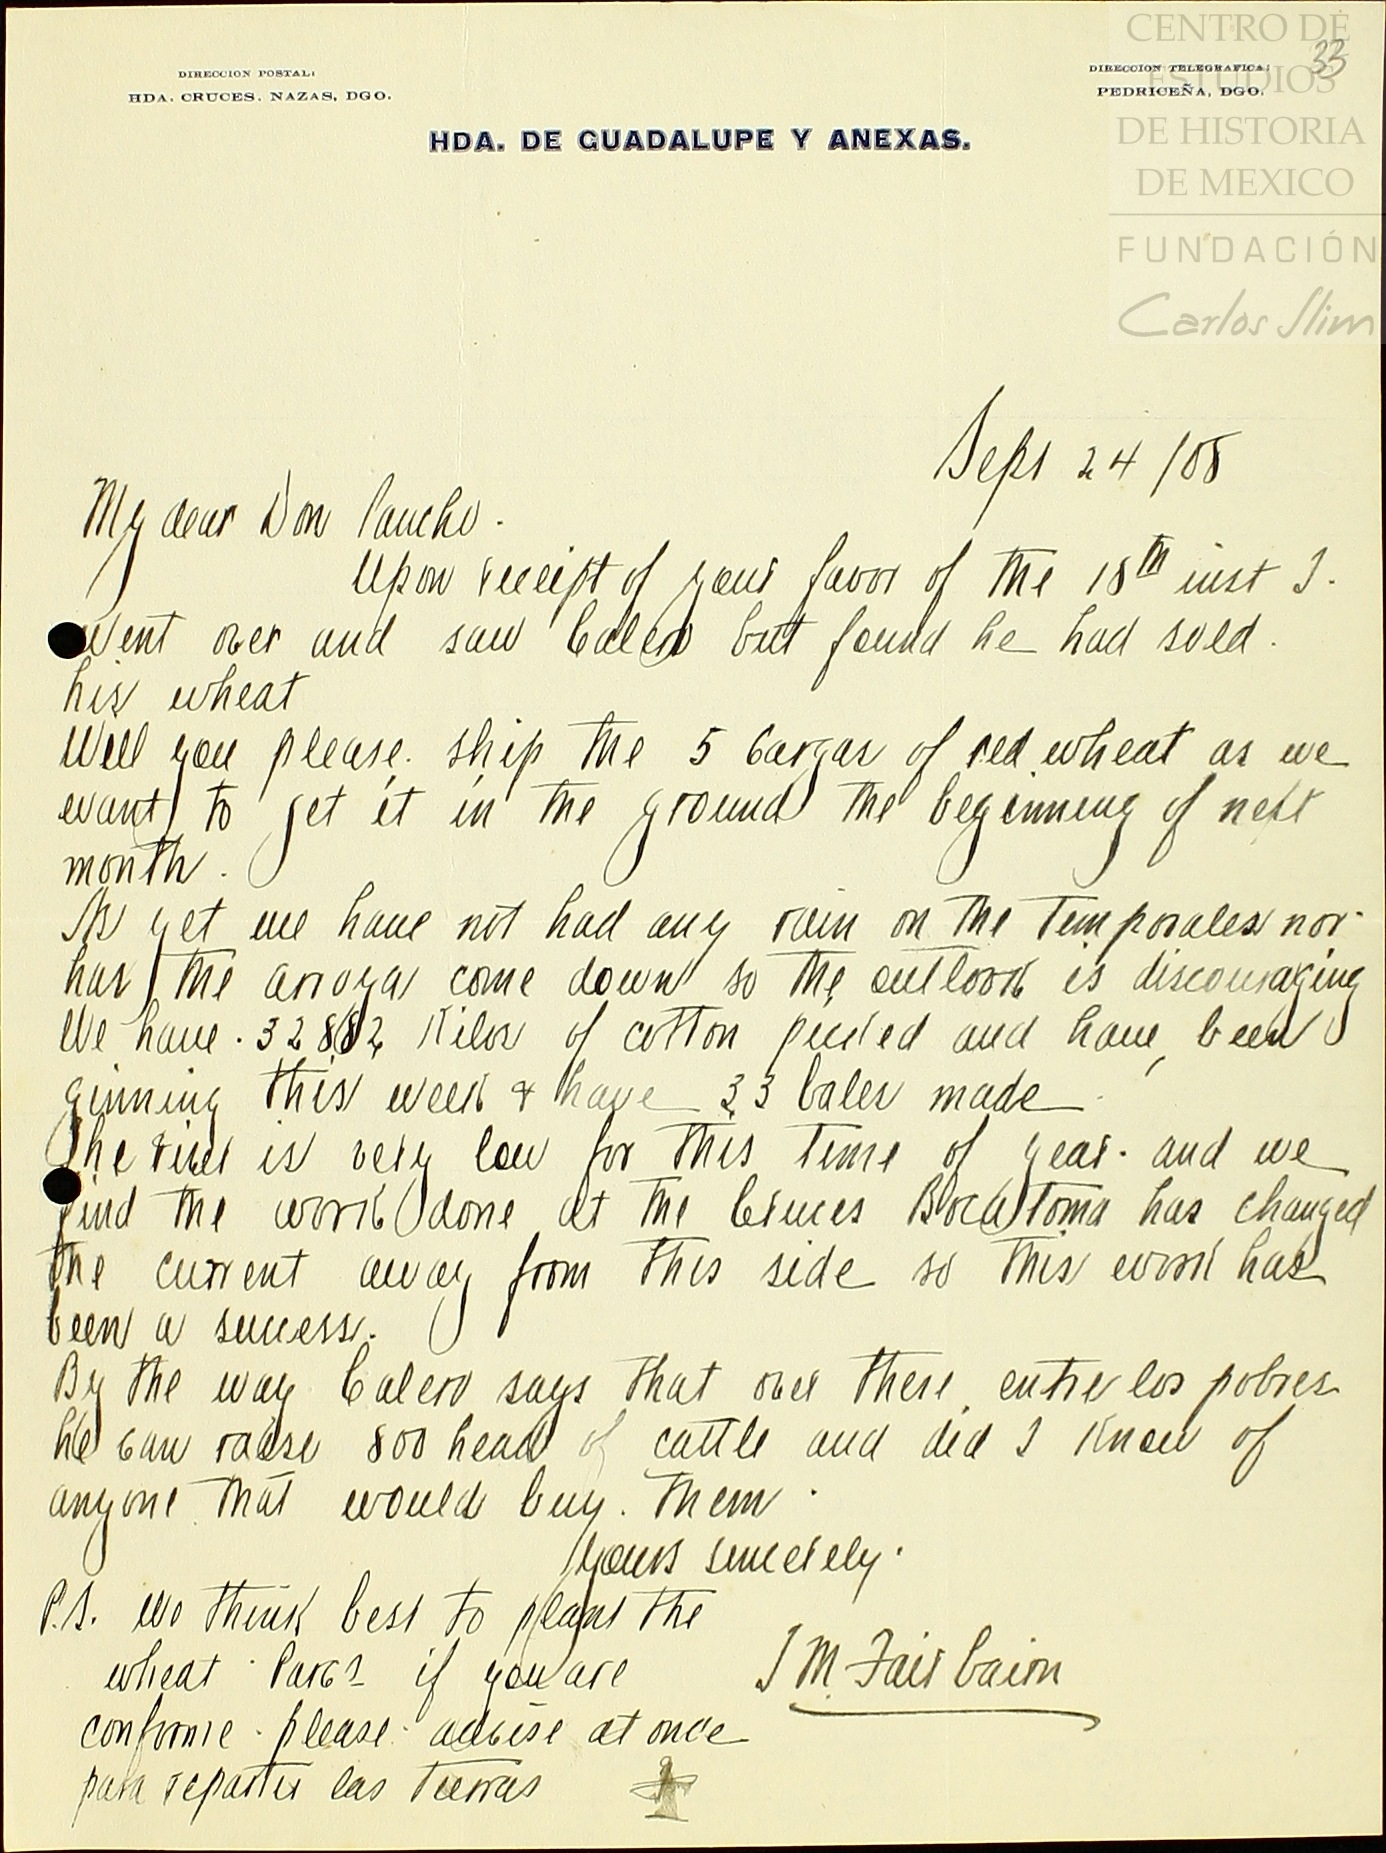 CENTRO DE
ESTUDIOS
DE HISTORIA
DE MEXICO
FUNDACIÓN
Carlos Slim
33
DIRECCION POSTAL:
HDA. CRUCES. NAZAS, DGO.
DIRECCION TELEGRAFICA:
PEDRICEÑA, DGO.
HDA. DE GUADALUPE Y ANEXAS.
Sept 24 /08
My dear Don Pancho.
Upon receipt of your favor of the 18th inst I.
went over and saw Calero but found he had sold.
his wheat
Will you please. ship the 5 Cargas of red wheat as we
want to get it in the ground the beginning of next
month.
As yet we have not had any rain on the Temporales nor
has the arroya come down so the outlook is discouraging
We have. 32882 Kilos of cotton picked and have been
ginning this week & have 33 bales made
The river is very low for this time of year. and we
find the work done at the Cruces Boca Toma has changed
the current away from this side so this work has
been a success.
By the way Calero says that over there entre los pobres
he can raise 800 head of cattle and did I know of
anyone that would buy. them.
Yours sincerely.
P.S. We think best to plant the
wheat if you are
conforme. please. advise at once
para repartir las tierras
J M Fairbairn